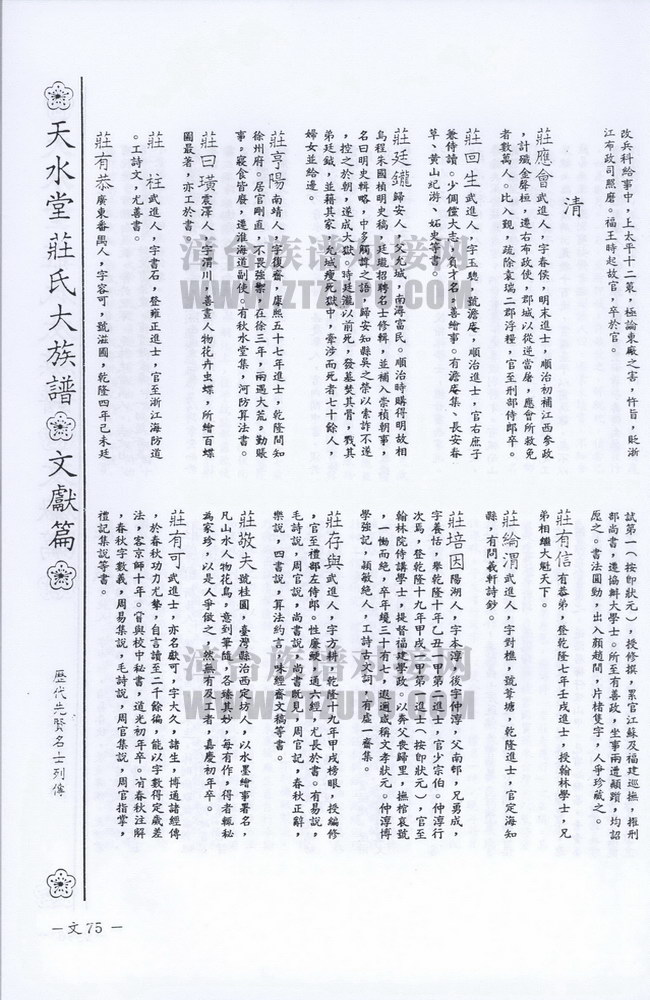 天水堂莊氏大族譜 文獻篇
歷代先賢名士列傳
改兵科給事中,上太平十二策,極論東廠之害,忤旨,貶浙
江布政司照磨。福王時起故官,卒於官。
清
莊應會 武進人,字春侯,明末進士,順治初補江西參政
,計殲金聲桓,遷右布政使,郡城以從逆當屠,應會所救免
者數萬人。比入覲,疏除袁瑞二郡浮糧,官至刑部侍郎卒。
莊回生 武進人,字玉驄,號澹庵,順治進士,官右庶子
兼侍讀。少倜儻大志,負才名,善繪事。有澹庵集、長安春
草、黃山紀游、妬史等書。
莊廷鑨 歸安人,父允城,南潯富民。順治時購得明故相
烏程朱國楨明史稿,廷鑨招聘名士修輯,並補入崇禎朝事,
名曰明史輯略,中多觸諱之語,歸安知縣吳之榮以索詐不遂
,控之於朝,遂成大獄。時廷鑨以前死,發墓焚其骨,戮其
弟廷鉞,並藉其家,允城瘐死獄中,牽涉而死者七十餘人,
婦女並給邊。
莊亨陽 南靖人,字復齋,康熙五十七年進士,乾隆間知
徐州府。居官剛直,不畏強禦,在徐三年,兩遇大荒,勤賑
事,寢食皆廢,遷淮海道副使。有秋水堂集,河防算法書。
莊日璜 震澤人,字渭川,善畫人物花卉虫蝶,所繪百蝶
圖最著,亦工於書。
莊柱 武進人,字書石,登雍正進士,官至浙江海防道
。工詩文,尤善書。
莊有恭 廣東番禺人,字容可,號滋圃,乾隆四年己未廷
試第一(按即狀元),授修撰,累官江蘇及福建巡撫,擢刑
部尚書,遷協辦大學士。所至有善政,坐事兩遭顛躓,均詔
愿之。書法圓勁,出入顏趙間,片楮隻字,人爭珍藏之。
莊有信 有恭弟,登乾隆七年壬戌進士,授翰林學士,兄
弟相繼大魁天下。
莊綸渭 武進人,字對樵,號葦塘,乾隆進士,官定海知
縣,有問義軒詩鈔。
莊培因 陽湖人,字本淳,後字仲淳,父南邨,兄勇成,
字養恬,舉乾隆十年乙丑一甲第一進士,官少宗伯。仲淳行
次焉,登乾隆十九年甲戌一甲第一進士(按即狀元),官至
翰林院侍講學士,提督福建學政。以奔父喪歸里,撫棺哀號
,一慟而絕,卒年纔三十有七,遐邇咸稱文孝狀元。仲淳博
學強記,穎敏絕人,工詩古文詞,有虛一齋集。
莊存與 武進人,字方耕,乾隆十九年甲戌榜眼,授編修
,官至禮部左侍郎。性廉鯁,通六經,尤長於書。有易說,
毛詩說,周官說,尚書說,尚書既見,周官記,春秋正辭,
樂說,四書說,算法約言,味經齋文稿等書。
莊敬夫 號桂園,臺灣縣治西定坊人,以水墨繪事署名,
凡山水人物花鳥,意到筆隨,各臻其妙,每有作,得者輒秘
為家珍,以是人爭倣之,然無有及工者,嘉慶初年卒。
莊有可 武進士,亦名獻可,字大久,諸生,博通諸經傳
,於春秋功力尤摯,自言讀至二千餘徧,能以字數得定歲差
法,客京師十年。曾與校中秘書,道光初年卒。有春秋注解
,春秋字數義,周易集說,毛詩說,周官集說,周官指掌,
禮記集說等書。
-文75-
WWW.ZTZUP.COM
WWW.ZTZUP.COM